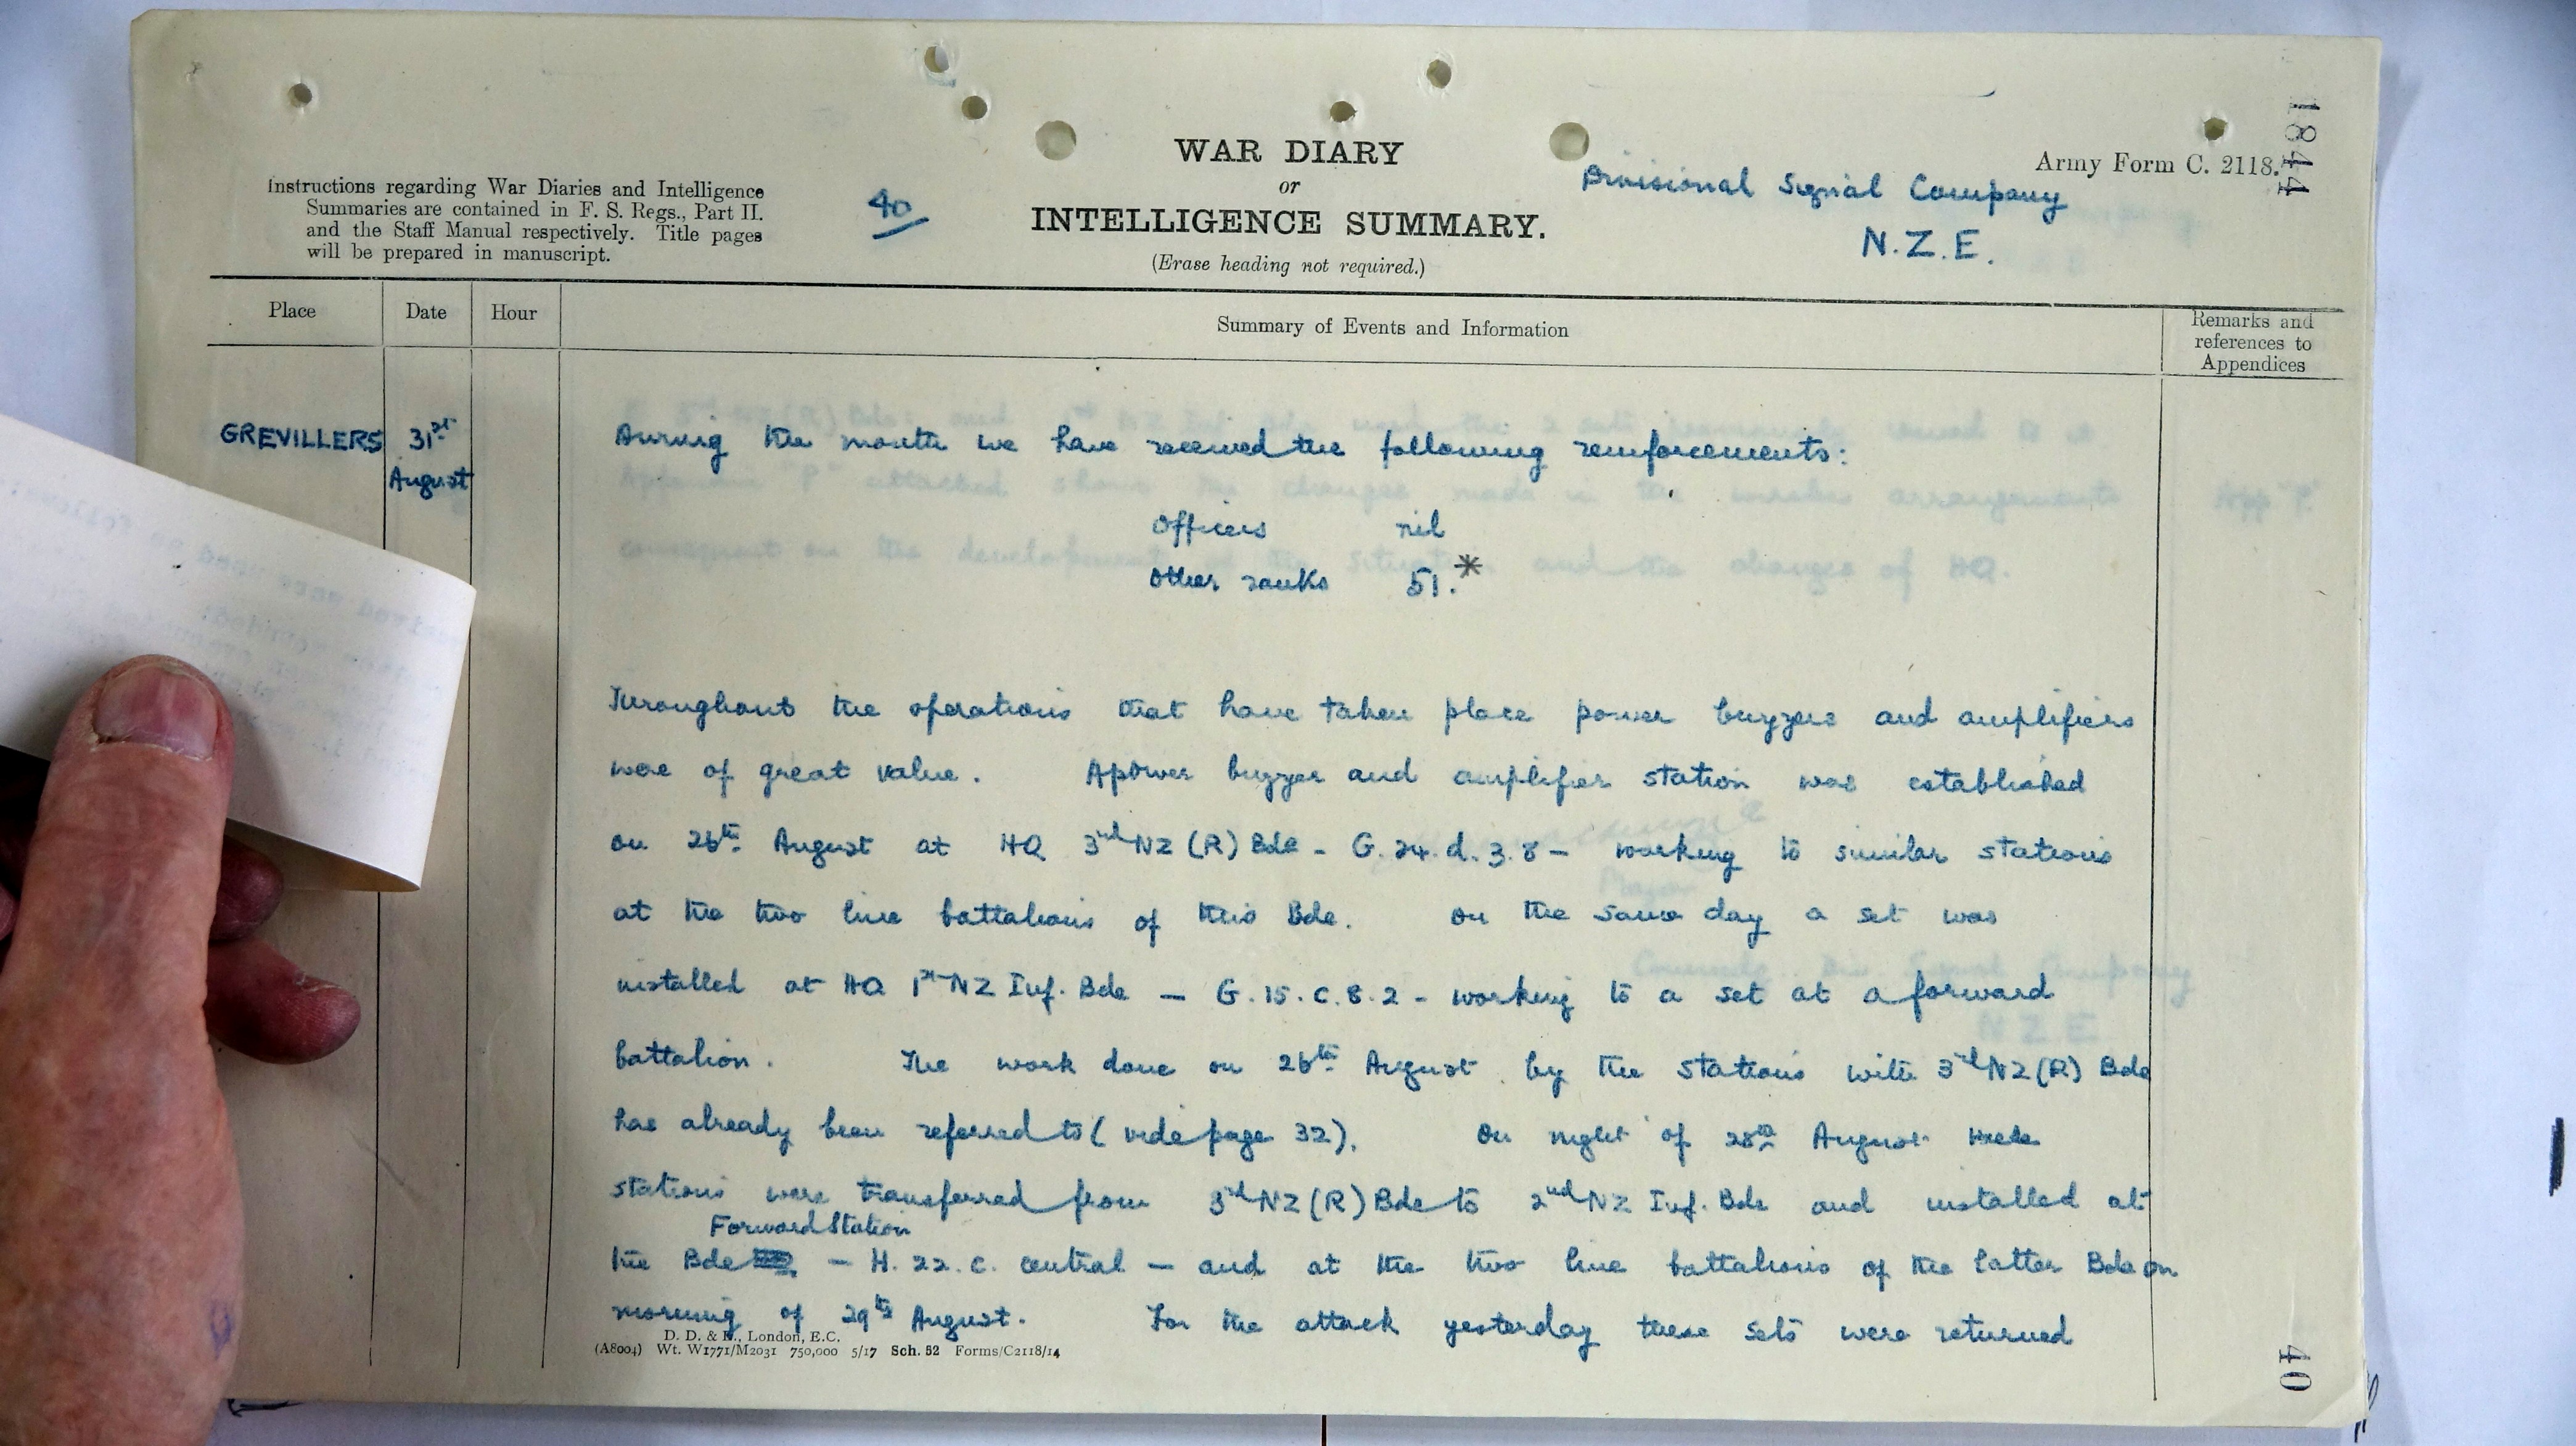 WAR DIARY
or
INTELLIGENCE SUMMARY.
(Erase heading not required.)
Instructions regarding War Diaries and Intelligence
Summaries are contained in F. S. Regs., Part II.
and the Staff Manual respectively. Title pages
will be prepared in manuscript.
40
Divisional Signal Company
N.Z.E.
Army Form C. 2118.
1844
Place
Date
Hour
Summary of Events and Information
Remarks and
references to
Appendices
GREVILLERS
31st
August
During the month we have received the following reinforcements:
Officers nil
Other ranks 51.*
Throughout the operations that have taken place power buzzers and amplifiers
were of great value. A power buzzer and amplifier station was established
on 26th August at HQ 3rd NZ (R) Bde - G.24.d.3.8 - working to similar stations
at the two line battalions of this Bde. On the same day a set was
installed at HQ 1st NZ Inf. Bde - G.15.c.8.2 - working to a set at a forward
battalion. The work done on 26th August by the stations with 3rd NZ (R) Bde
has already been referred to (vide page 32). On night of 28th August these
stations were transferred from 3rd NZ (R) Bde to 2nd NZ Inf. Bde and installed at
Forward Station
the Bde - H.22.c. central - and at the two line battalions of the latter Bde on
morning of 29th August. For the attack yesterday these sets were returned
D. D. & L., London, E.C.
(A8004) Wt. W1771/M2031 750,000 5/17 Sch. 52 Forms/C2118/14
40